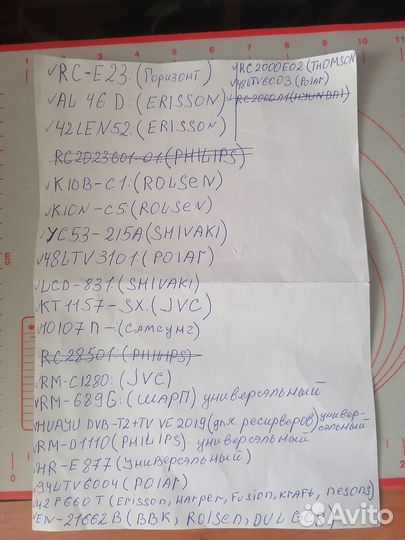 ✓RC-E23: (Горизонт)
✓AL 46 D: (ERISSON)
✓42LEN52: (ERISSON)
RC2023601-01: (PHILIPS)
✓K10B-C1: (ROLSEN)
✓K10N-C5: (ROLSEN)
✓YC53-215A: (SHIVAKI)
✓48LTV3101: (POlAr)
✓LCD-831: (SHIVAKI)
✓KT1157-SX: (JVC)
✓10107П-(Самсунг)
RC28501 (PHILIPS)
✓RM-C1280: (JVC)
✓RM-689G: (ШАРП) универсальный
✓HUAYU DVB-T2+TV VE 2019 (для ресиверов) универсальный
✓RM-D1110 (PHILIPS): универсальный
✓HR-E877 (Универсальный)
✓94LTV6004 (POlAr)
✓42F660T (Erisson, Harper, Fusion, Kraft, nesons)
✓EN-21662B (BBK, Rolsen,
✓RC2000E02 (THOMSON
✓48LTV6003 (POlAr)
✓RC2000 (HYUNDAI)
Avito